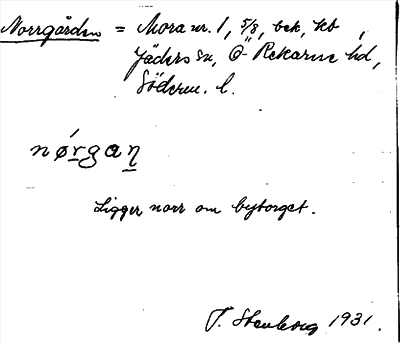 Norrgården = Mora nr. 1, 5/8, bek, kb,
Jäders sn, Ö Rekarne hd,
Söderm. l.
nǿrgaṉ
Ligger norr om bytorget.
T. Stenberg 1931.